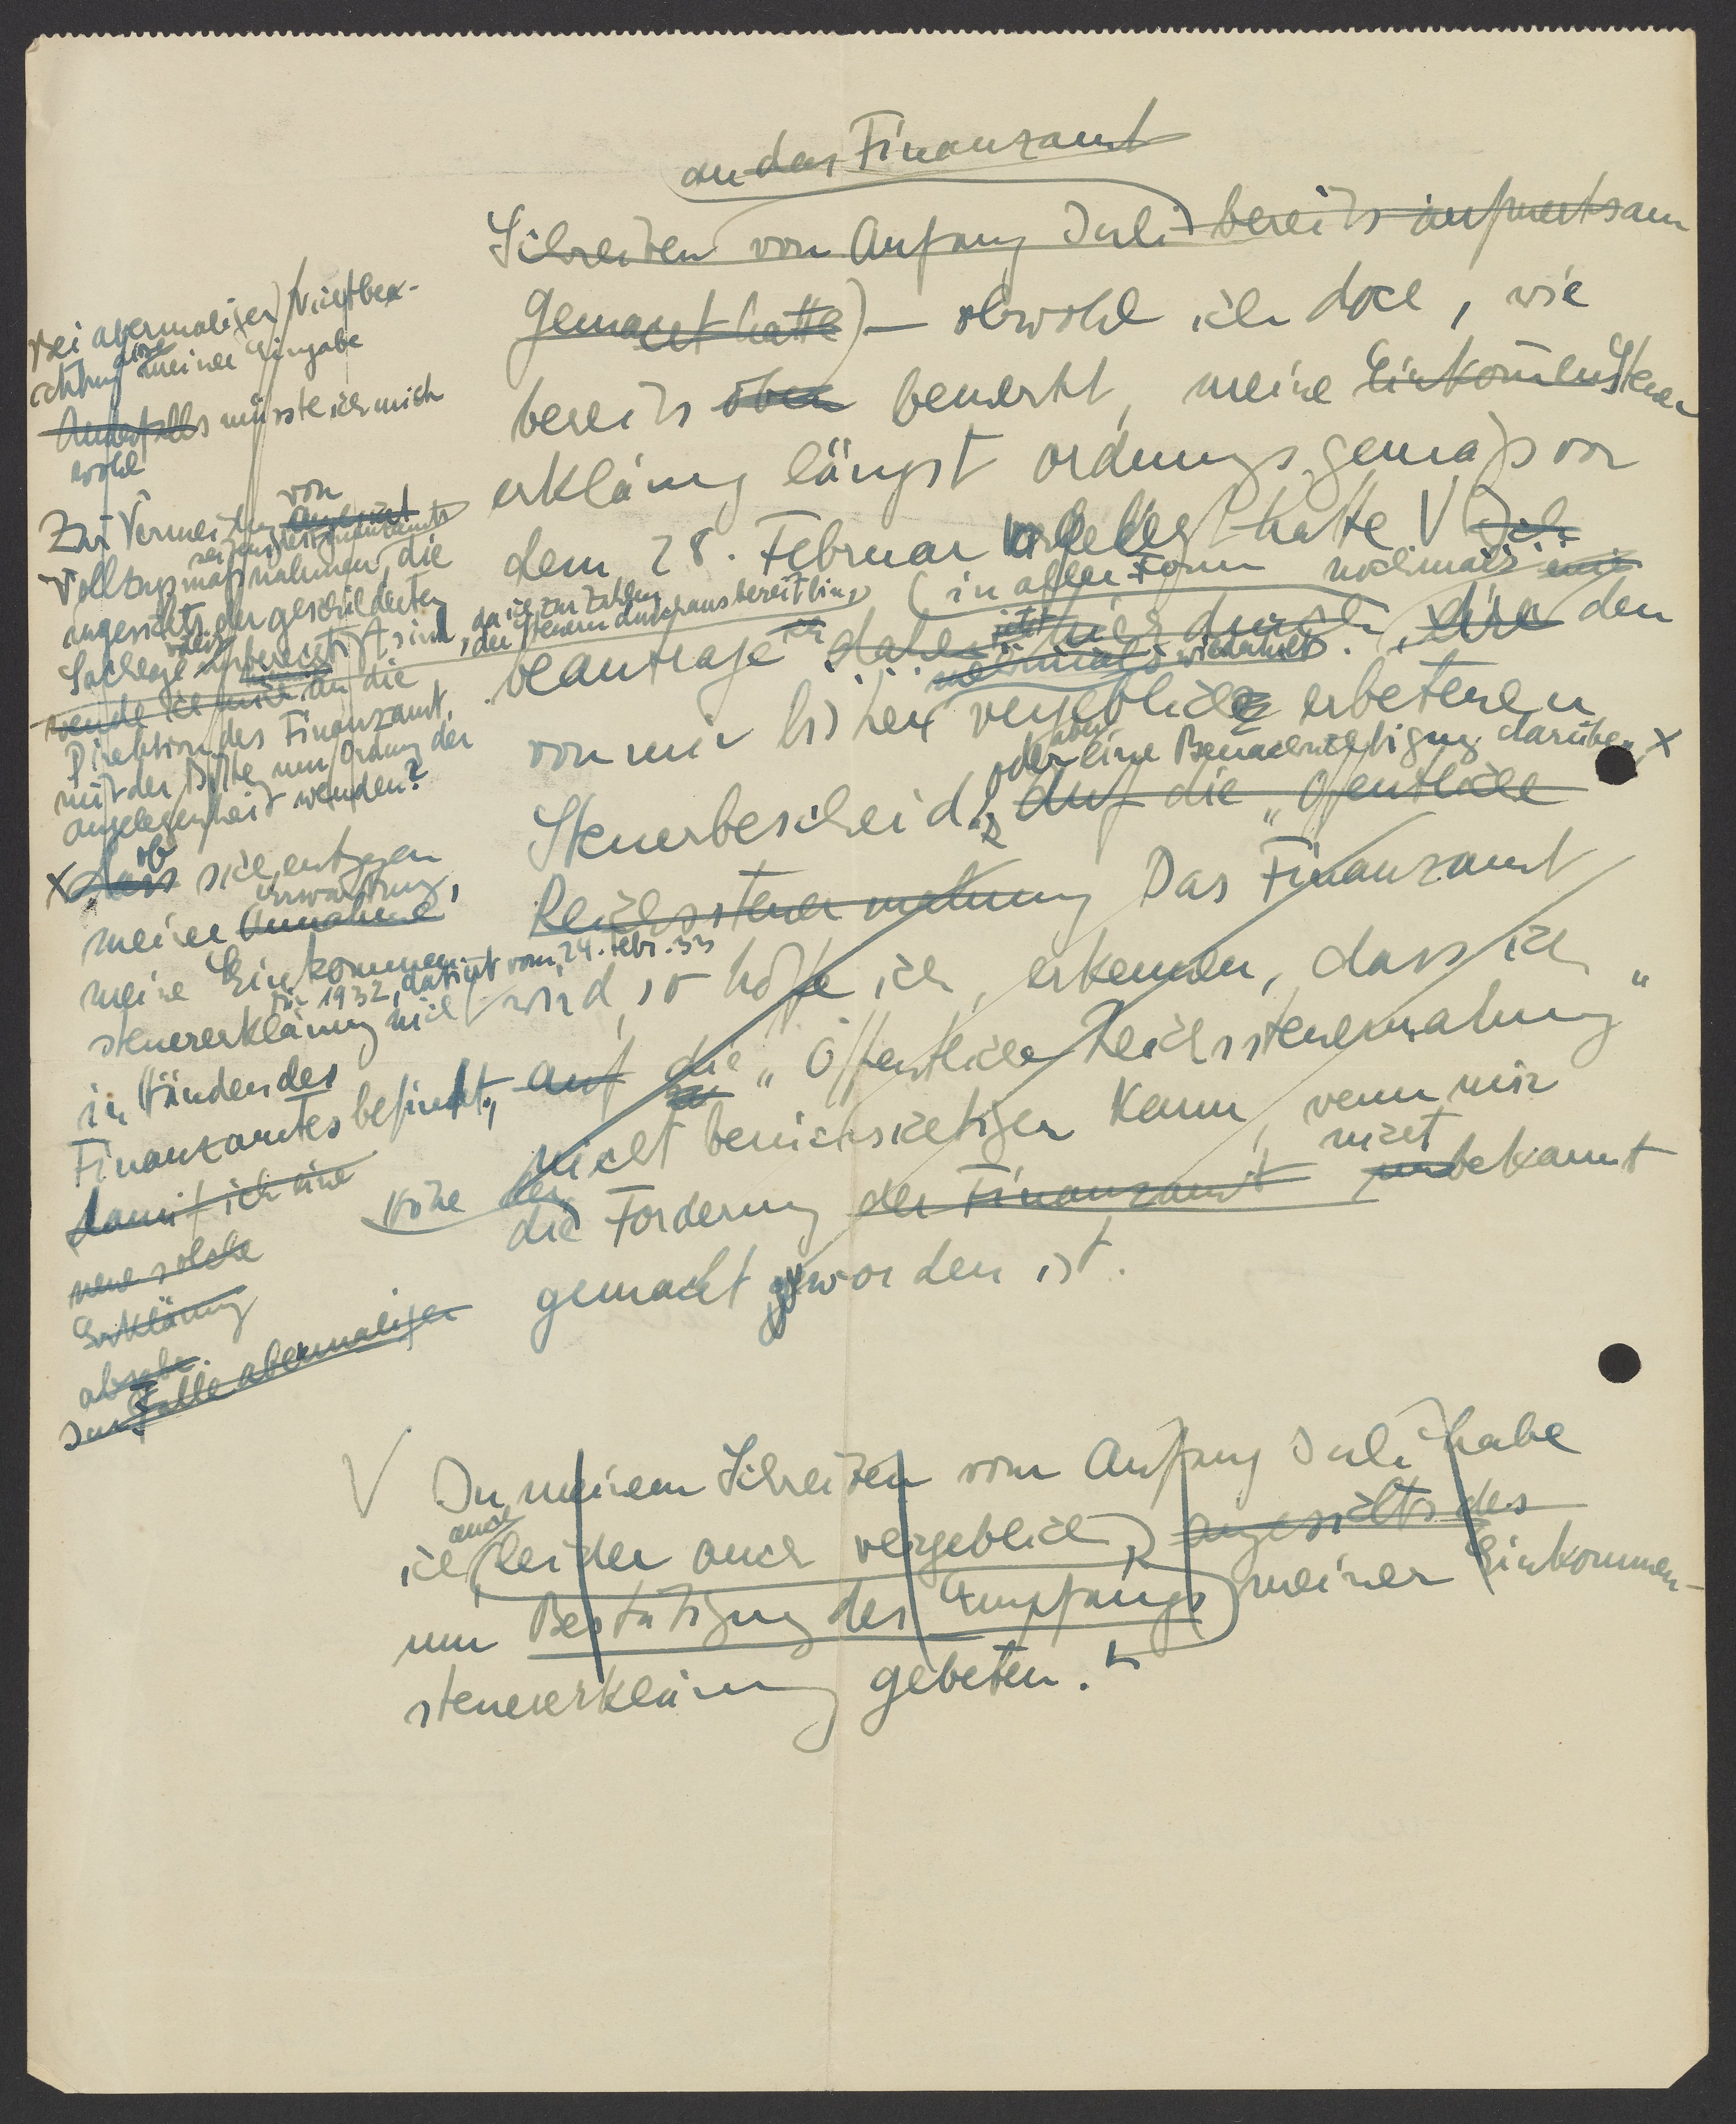 an das Finanzamt
Schreiben vom Anfang Juli bereits aufmerksam
gemacht hatte) — obwohl ich doch, wie
bereits oben bemerkt, meine Einkommensteuer
erklärung längst ordnungsgemäß vor
dem 28. Februar hatte V Ich
(in aller Form nochmals
beantrage ich daher jetzt hierdurch, die den
nochmals wiederholt.
von mir bisher vergeblich erbetenen
oder aber eine Benachrichtigung darüber, x
Steuerbescheid, Auf die „Öffentliche
Reichssteuermahnung Das Finanzamt
wird, so hoffe ich, erkennen, dass ich
auf die „Öffentliche Reichssteuermahnung"
nicht berücksichtigen kann, wenn mir
Höhe der nicht
die Forderung der Finanzamt unbekannt
gemacht geworden ist.
bei abermaliger Nichtbea-
chtung meiner Eingabe
Andernfalls müsste ich mich
wohl
Zur Vermeidung von
Vollzugsmaßnahmen, die
seitens des Finanzamts
angesichts der geschilderten
Sachlage unberechtigt sind, da ich zur Zahlung
der Steuern durchaus bereit bin,
wende ich mich an die
Direktion des Finanzamt,
mit der Bitte um Ordnung der
Angelegenheit wenden?
x dass ob sich, entgegen
Erwartung,
meiner Annahme,
meine Einkommen-
für 1932, datiert vom 24. Febr. 33
steuererklärung nicht
in Händen des
Finanzamtes befindet,
damit ich eine
neue solche
Erklärung
abgebe.
Im Falle abermaliger
V In meinem Schreiben vom Anfang Juli habe
auch
ich (leider auch vergeblich,) angesichts des
um Bestätigung des Empfangs meiner Einkommen-
steuererklärung gebeten.